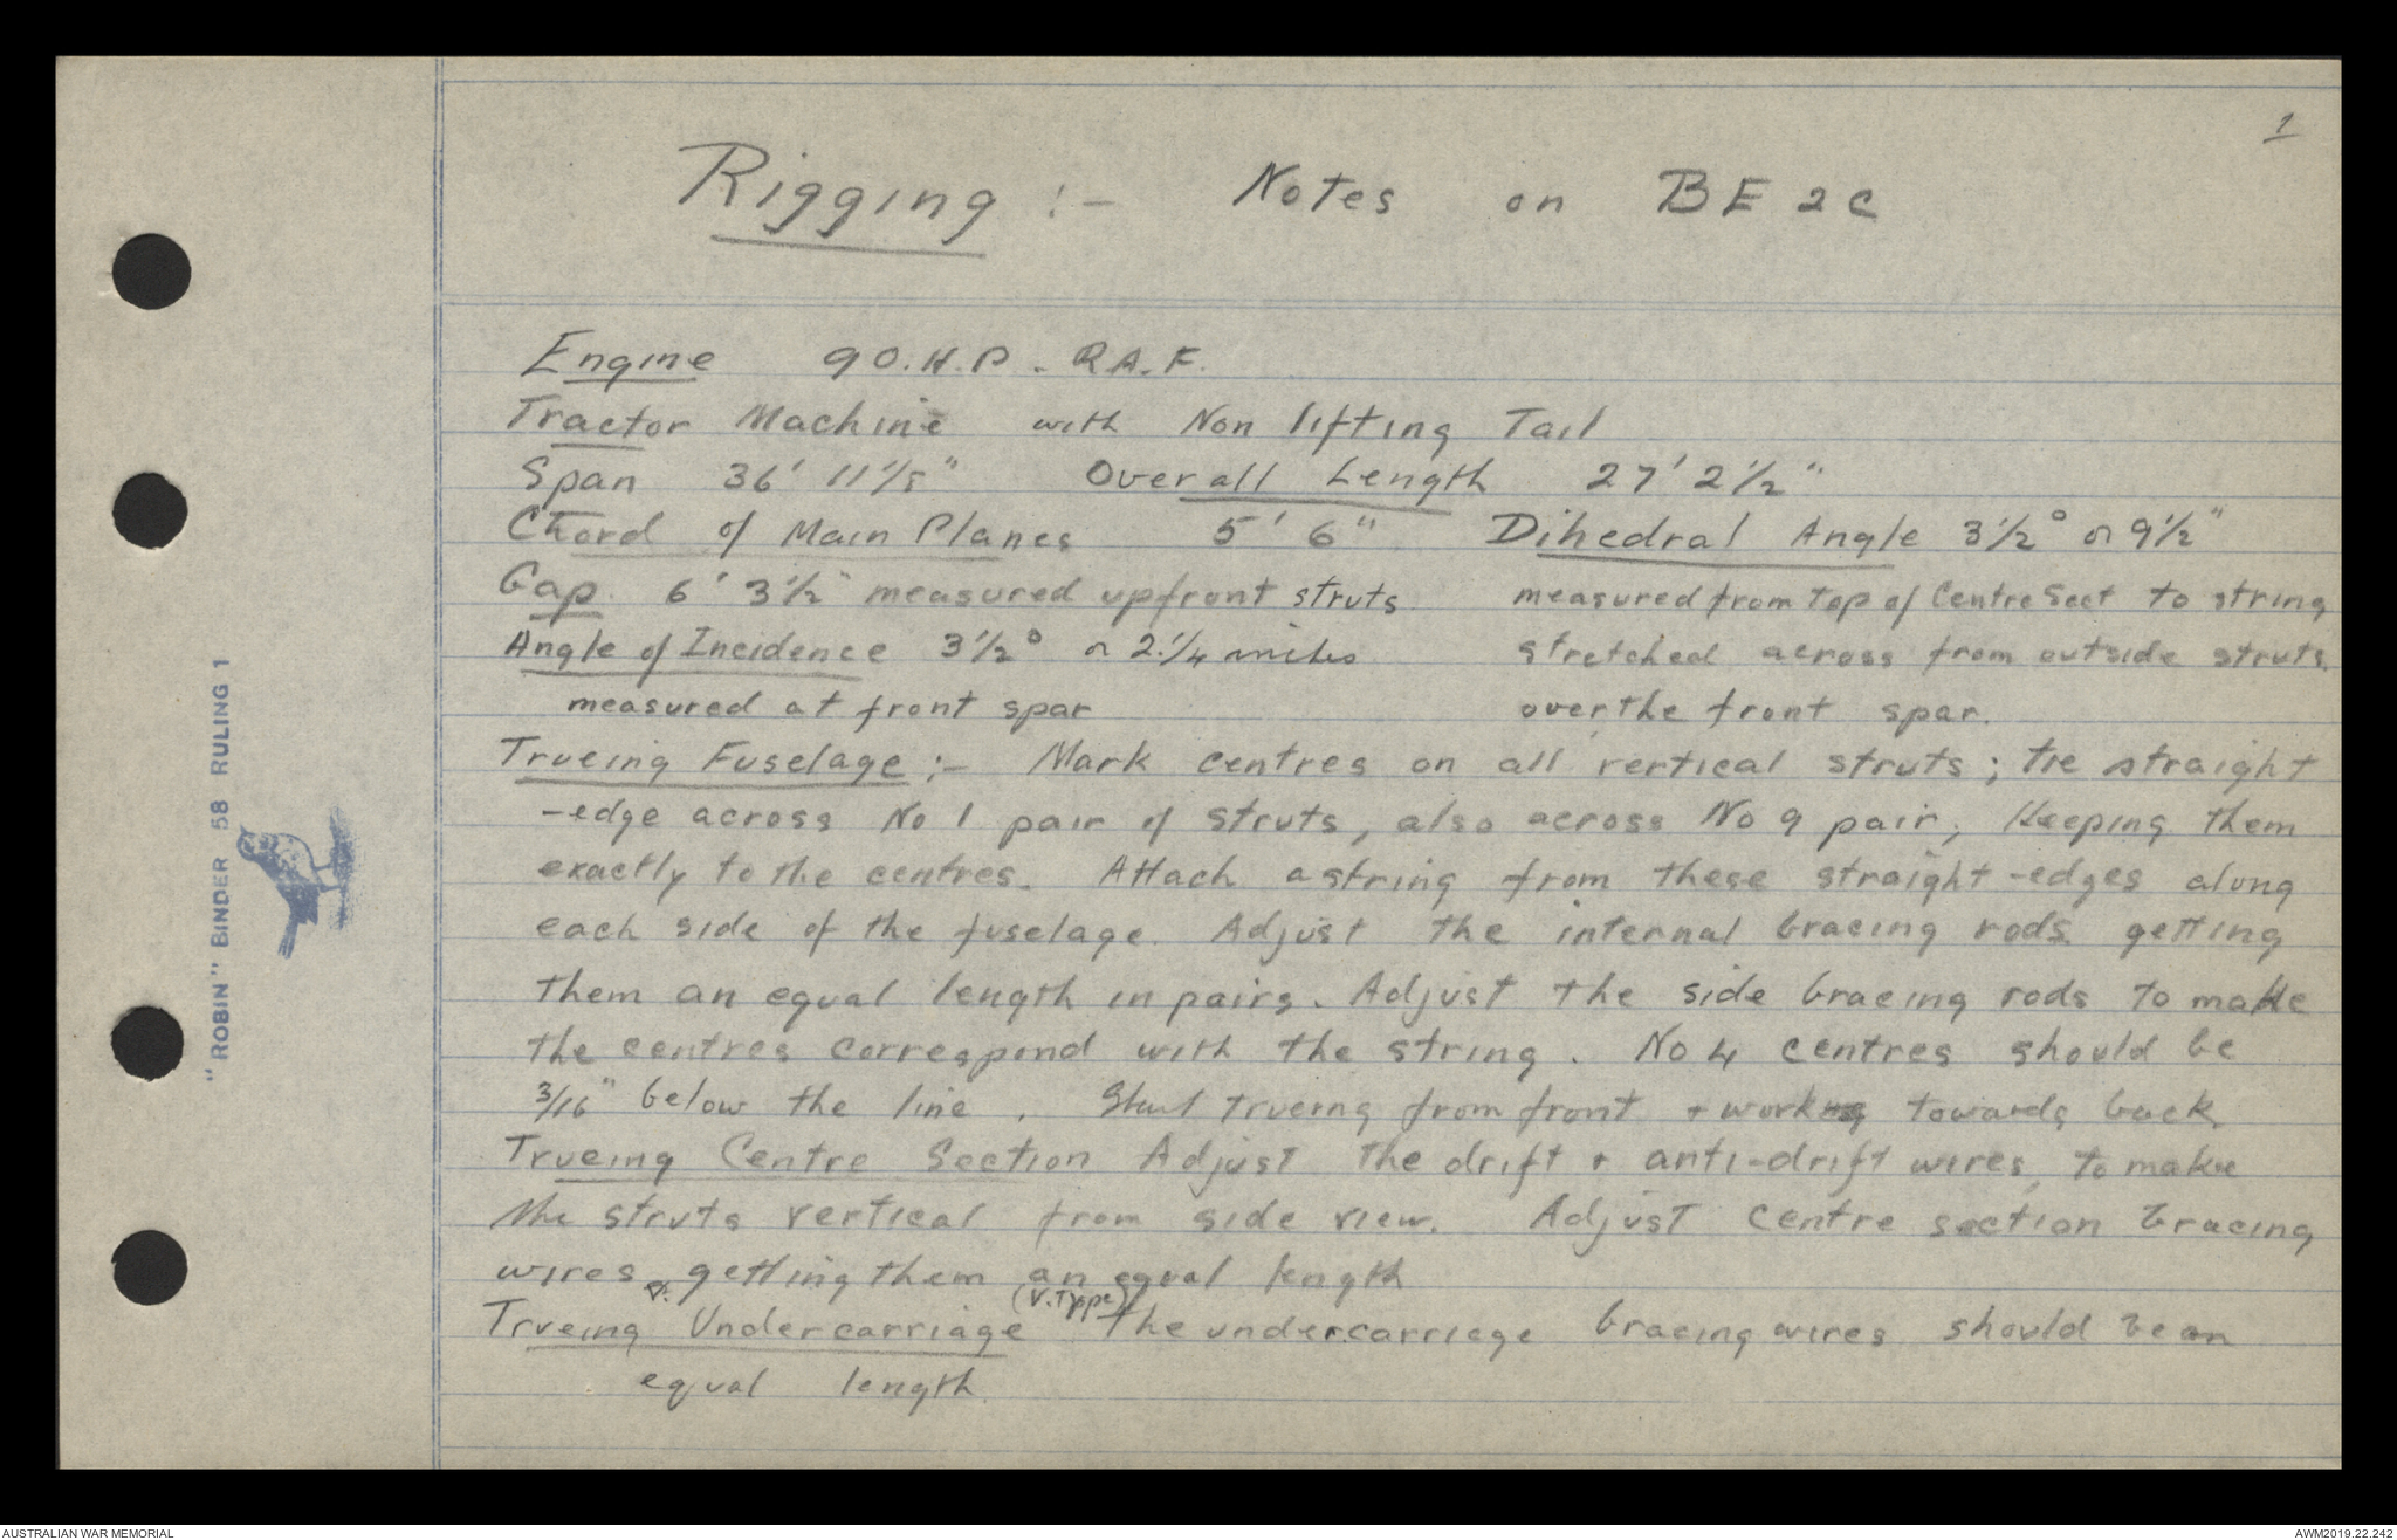 1
Rigging :- Notes on BE2C
Engine 90.H.P. R.A.F.
Tractor Machine with Non lifting Tail
Span 36' 11 1/5" Overall Length 27' 2 1/2"
Chord of Main Planes 5' 6" Dihedral Angle 3 1/2° or 9 1/2"
Gap. 6' 3 1/2" measured up front struts. measured from top of Centre Sect to string
Angle of Incidence 3 1/2° or 2 1/4 inches stretched across from outside struts.
measured at front spar over the front spar.
Trueing Fuselage :- Mark centres on all vertical struts; tie straight
-edge across No 1 pair of struts, also across No 9 pair, keeping them
exactly to the centres. Attach a string from these straight-edges along
each side of the fuselage. Adjust the internal bracing rods getting
them an equal length in pairs. Adjust the side bracing rods to make
the centres correspond with the string. No 4 centres should be
3/16" below the line. Start trueing from front + work towards back
Trueing Centre Section Adjust the drift + anti-drift wires, to make
the struts vertical from side view. Adjust centre section bracing
wires, getting them an equal length
Trueing Undercarriage (V. Type) The undercarriage bracing wires should be an
equal length.
"ROBIN" BINDER 58 RULING 1
AUSTRALIAN WAR MEMORIAL
AWM2019.22.242